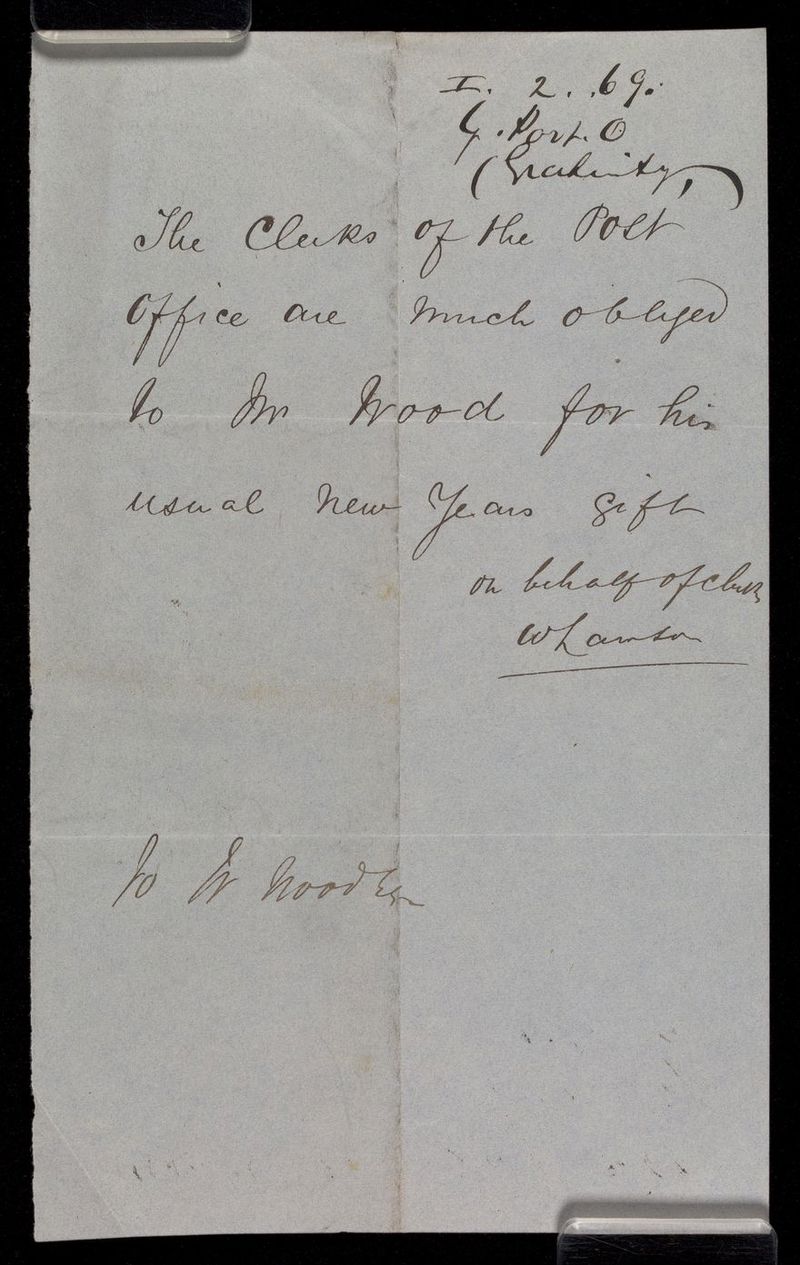 I. 2. 69.
G. Post. O
(Gratuity,)
The Clerks of the Post
Office are much obliged
to Mr Wood for his
usual New Years gift
on behalf of clerks
W Lawson
To W Wood Esq